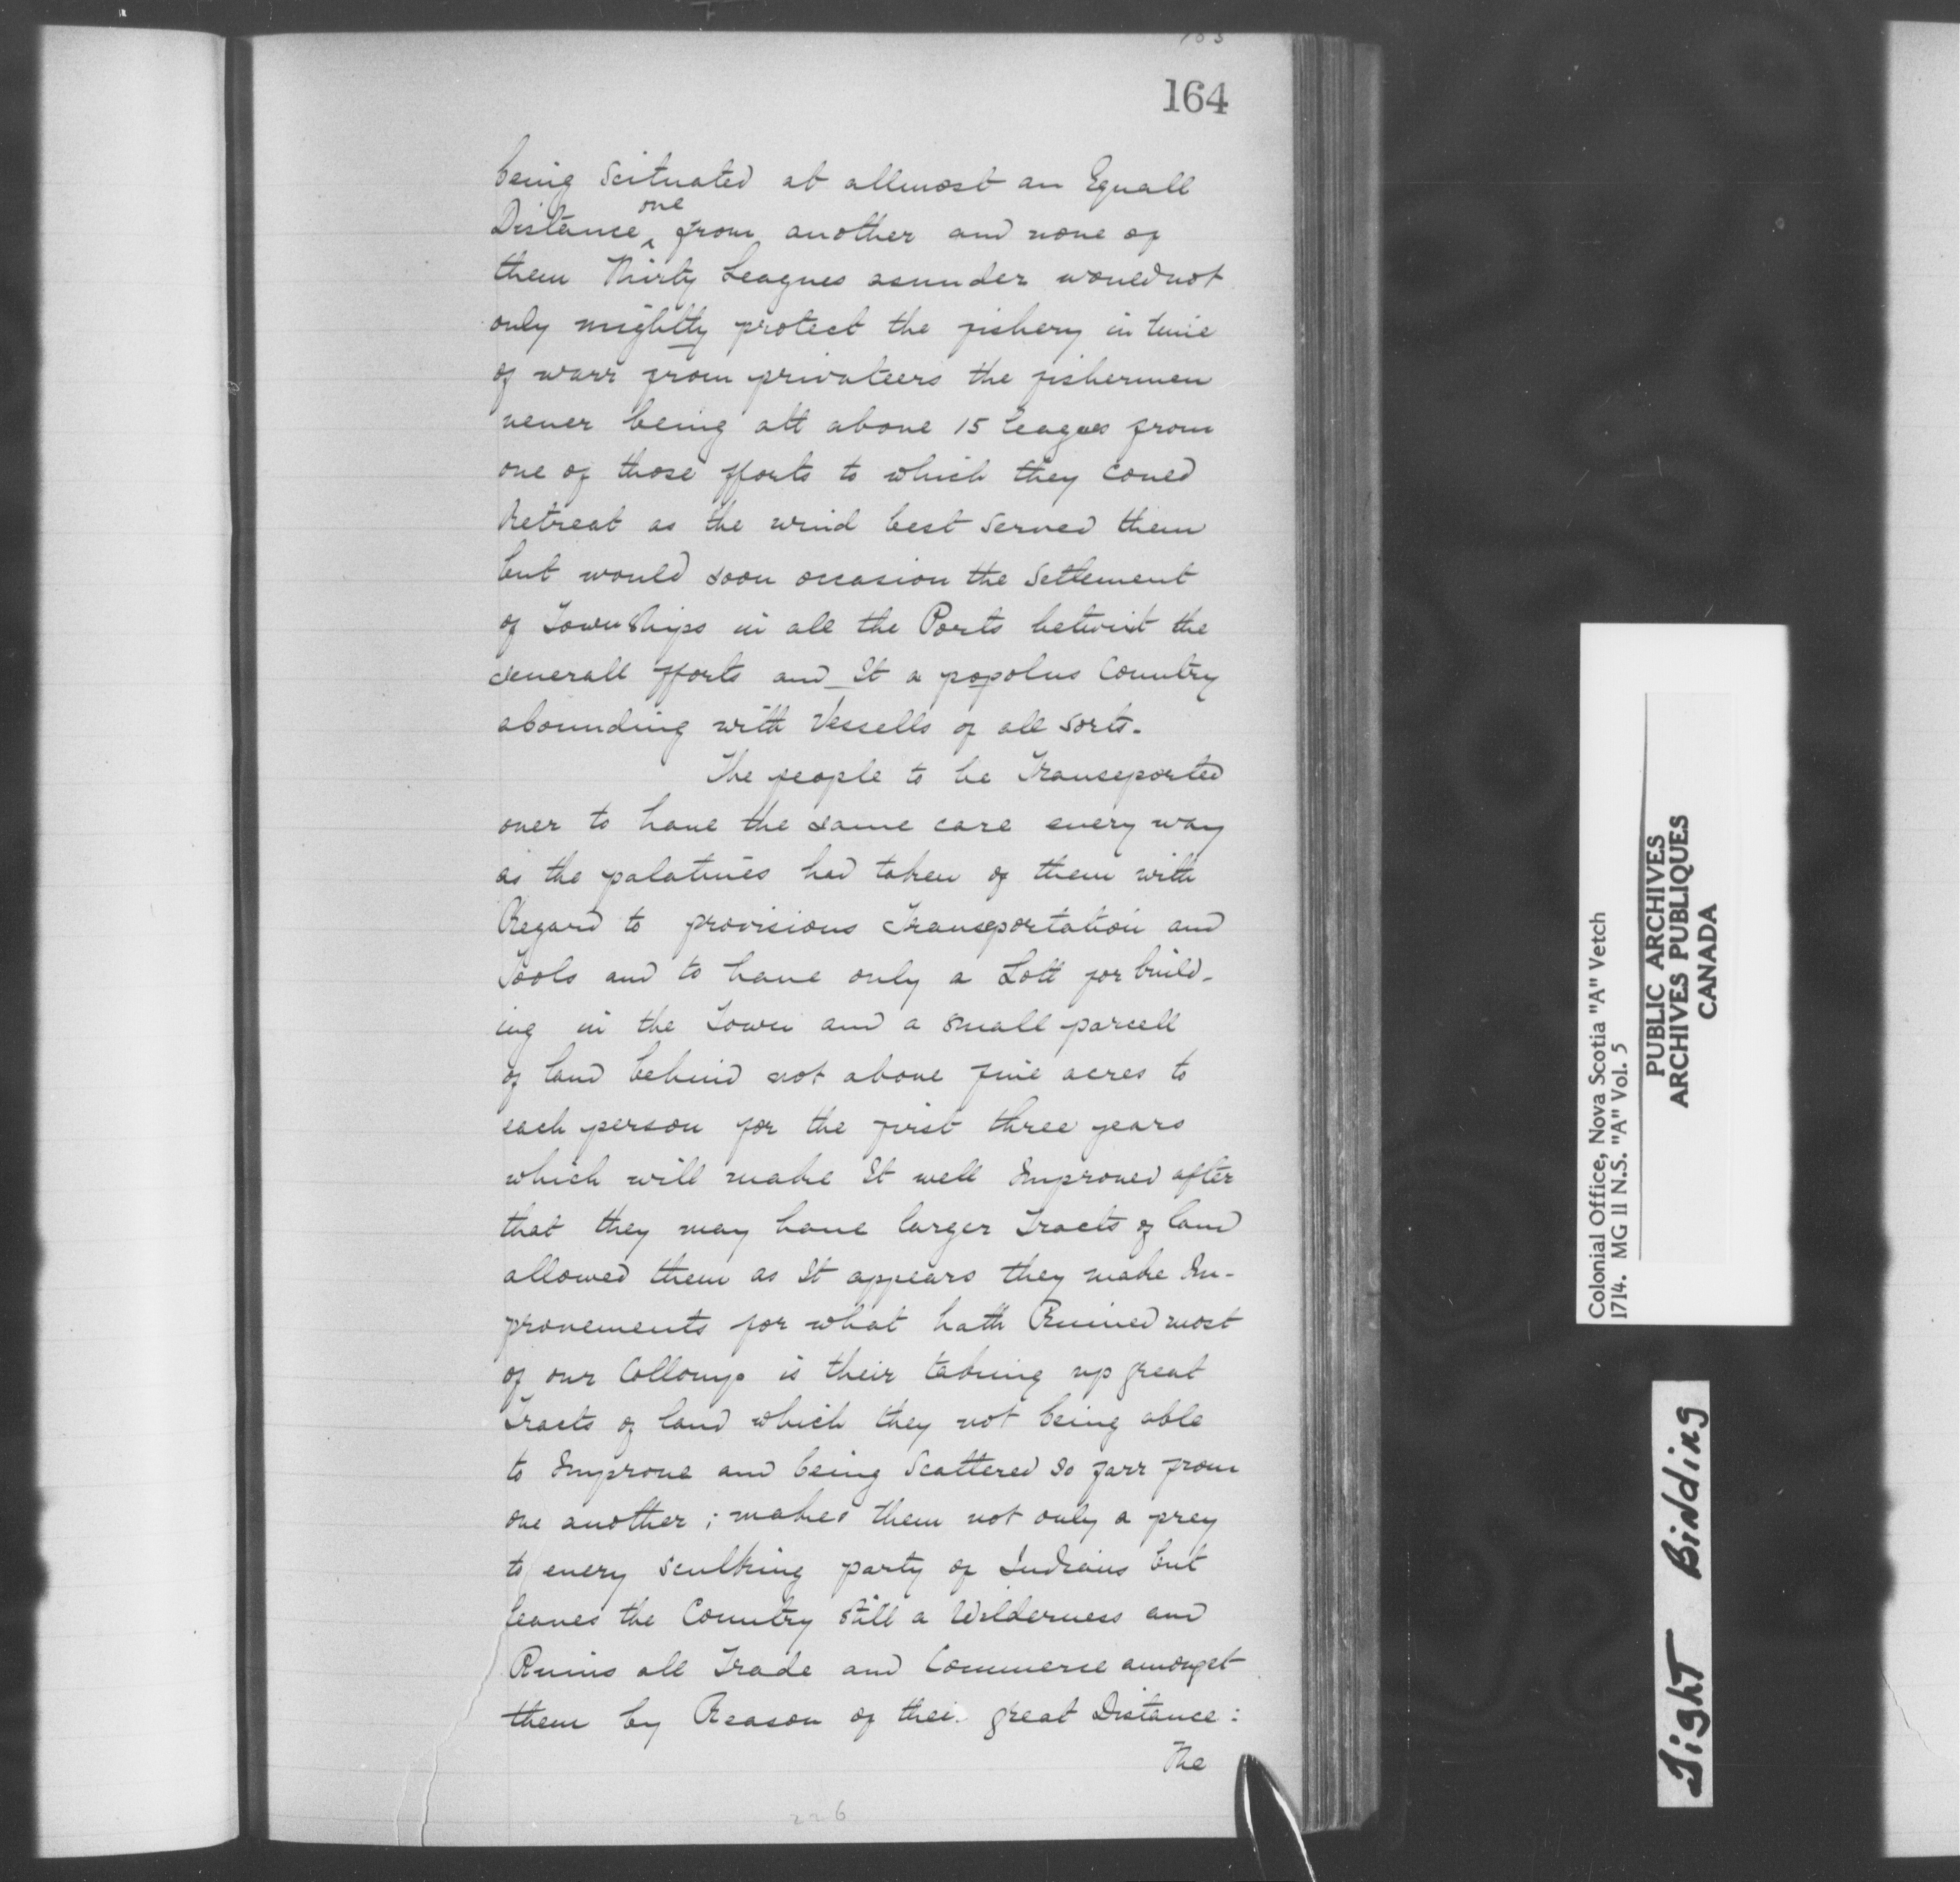 163
164
being scituated at allmost an Equall
Distance one from another and none of
them Thirty Leagues asunder would not
only mightty protect the fishery in time
of warr from privateers the fishermen
never being att above 15 leagues from
one of those fforts to which they could
Retreat as the wind best served them
but would soon occasion the Settlement
of Townships in all the Ports betwixt the
severall fforts and It a popolus Country
abounding with Vessells of all sorts.
The people to be Transeported
over to have the same care every way
as the palatines had taken of them with
Regard to provisions Transeportation and
Tools and to have only a Lott for build-
ing in the Town and a small parcell
of land behind not above five acres to
each person for the first three years
which will make It well Improved after
that they may have larger Tracts of land
allowed them as It appears they make Im-
provements for what hath Ruined most
of our Collonys is their taking up great
Tracts of land which they not being able
to Improve and being Scattered so farr from
one another; makes them not only a prey
to every sculking party of Indians but
leaves the Country still a Wilderness and
Ruins all Trade and Commerce amongst
them by Reason of their great Distance:
The
226
Colonial Office, Nova Scotia "A" Vetch
1714. MG 11 N.S. "A" Vol. 5
PUBLIC ARCHIVES
ARCHIVES PUBLIQUES
CANADA
Tight Binding